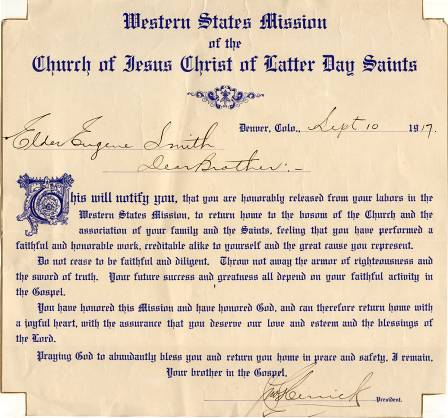 Western States Mission
of the
Church of Jesus Christ of Latter Day Saints
Denver, Colo., Sept 10 1917.
Elder Eugene Smith
Dear Brother:-
This will notify you, that you are honorably released from your labors in the
Western States Mission, to return home to the bosom of the Church and the
association of your family and the Saints, feeling that you have performed a
faithful and honorable work, creditable alike to yourself and the great cause you represent.
Do not cease to be faithful and diligent. Throw not away the armor of righteousness and
the sword of truth. Your future success and greatness all depend on your faithful activity in
the Gospel.
You have honored this Mission and have honored God, and can therefore return home with
a joyful heart, with the assurance that you deserve our love and esteem and the blessings of
the Lord.
Praying God to abundantly bless you and return you home in peace and safety, I remain,
Your brother in the Gospel,
Herrick
President.